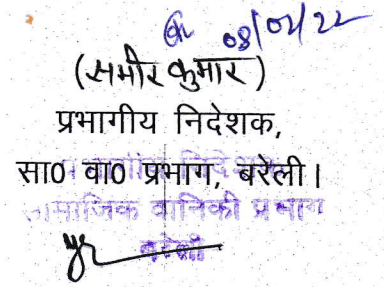 08/02/22
(समीर कुमार)
प्रभागीय निदेशक,
सा0 वा0 प्रभाग, बरेली।
प्रभागीय निदेशक
सामाजिक वानिकी प्रभाग
बरेली